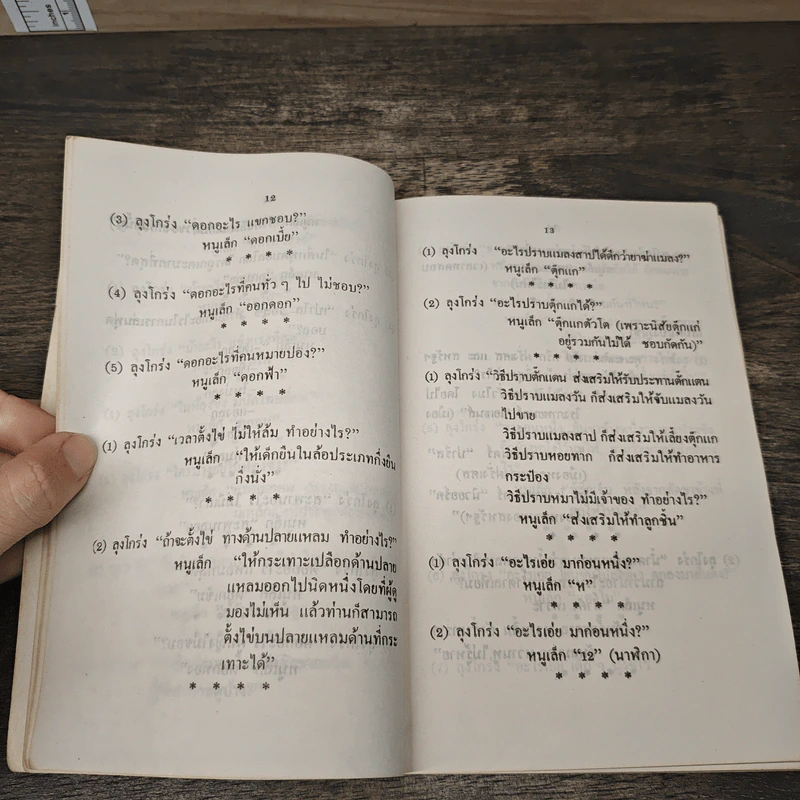 inches
12
(3) ลุงโกร่ง “ดอกอะไร แขกชอบ?”
หนูเล็ก “ดอกเบี้ย”
* * * *
(4) ลุงโกร่ง “ดอกอะไรที่คนทั่ว ๆ ไป ไม่ชอบ?”
หนูเล็ก “ออกดอก”
* * * *
(5) ลุงโกร่ง “ดอกอะไรที่คนหมายปอง?”
หนูเล็ก “ดอกฟ้า”
* * * *
(1) ลุงโกร่ง “เวลาตั้งไข่ ไม่ให้ล้ม ทำอย่างไร?”
หนูเล็ก “ให้เด็กยืนในล้อประเภทกึ่งยืน
กึ่งนั่ง”
* * * *
(2) ลุงโกร่ง “ถ้าจะตั้งไข่ ทางด้านปลายแหลม ทำอย่างไร?”
หนูเล็ก “ให้กระเทาะเปลือกด้านปลาย
แหลมออกไปนิดหนึ่งโดยที่ผู้ดู
มองไม่เห็น แล้วท่านก็สามารถ
ตั้งไข่บนปลายแหลมด้านที่กระ
เทาะได้”
* * * *
13
(1) ลุงโกร่ง “อะไรปราบแมลงสาปได้ดีกว่ายาฆ่าแมลง?”
หนูเล็ก “ตุ๊กแก”
* * * *
(2) ลุงโกร่ง “อะไรปราบตุ๊กแกได้?”
หนูเล็ก “ตุ๊กแกตัวโต (เพราะนิสัยตุ๊กแก
อยู่รวมกันไม่ได้ ชอบกัดกัน)”
* * * *
(1) ลุงโกร่ง “วิธีปราบตั๊กแตน ส่งเสริมให้รับประทานตั๊กแตน
วิธีปราบแมลงวัน ก็ส่งเสริมให้จับแมลงวัน
ไปขาย
วิธีปราบแมลงสาป ก็ส่งเสริมให้เลี้ยงตุ๊กแก
วิธีปราบหอยทาก ก็ส่งเสริมให้ทำอาหาร
กระป๋อง
วิธีปราบหมาไม่มีเจ้าของ ทำอย่างไร?”
หนูเล็ก “ส่งเสริมให้ทำลูกชิ้น”
* * * *
(1) ลุงโกร่ง “อะไรเอ่ย มาก่อนหนึ่ง?”
หนูเล็ก “ห”
* * * *
(2) ลุงโกร่ง “อะไรเอ่ย มาก่อนหนึ่ง?”
หนูเล็ก “12” (นาฬิกา)
* * * *